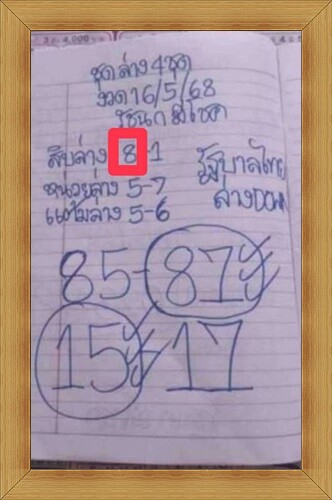 ชุดล่าง 4 ชุด
งวด 16/5/68
รัชนก มีโชค
สิบล่าง 8-1
หน่วยล่าง 5-7
แต้มล่าง 5-6
รัฐบาลไทย
ล่าง DOWN
85-87
15-17